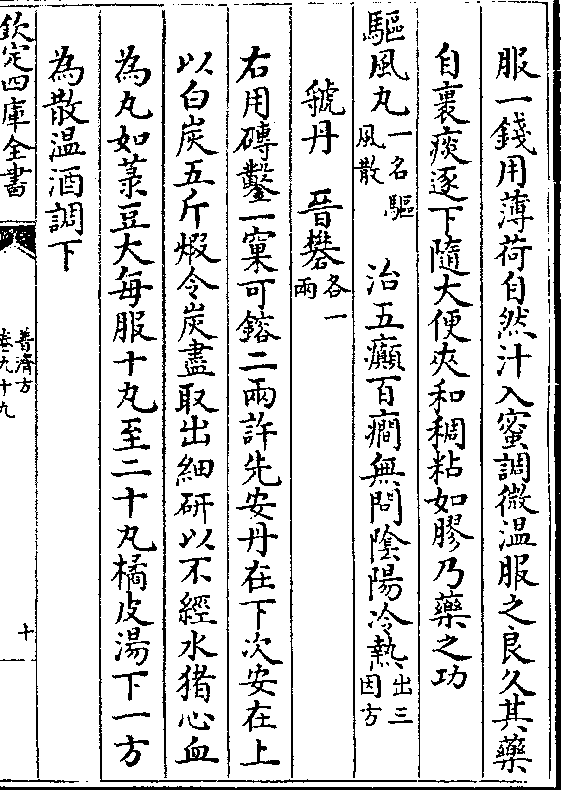 服一錢用薄荷自然汁入蜜調微温服之良久其藥
自裹痰逐下隨大便夾和稠粘如膠乃藥之功
驅風丸一名驅風散 治五癲百癎無問陰陽冷熱出三因方
虢丹 晉礬各一兩
右用磚鑿一窠可鎔二兩許先安丹在下次安在上
以白炭五斤煅令炭盡取出細研以不經水猪心血
為丸如菉豆大每服十丸至二十丸橘皮湯下一方
為散温酒調下
欽定四庫全書
普濟方
卷九十九
十